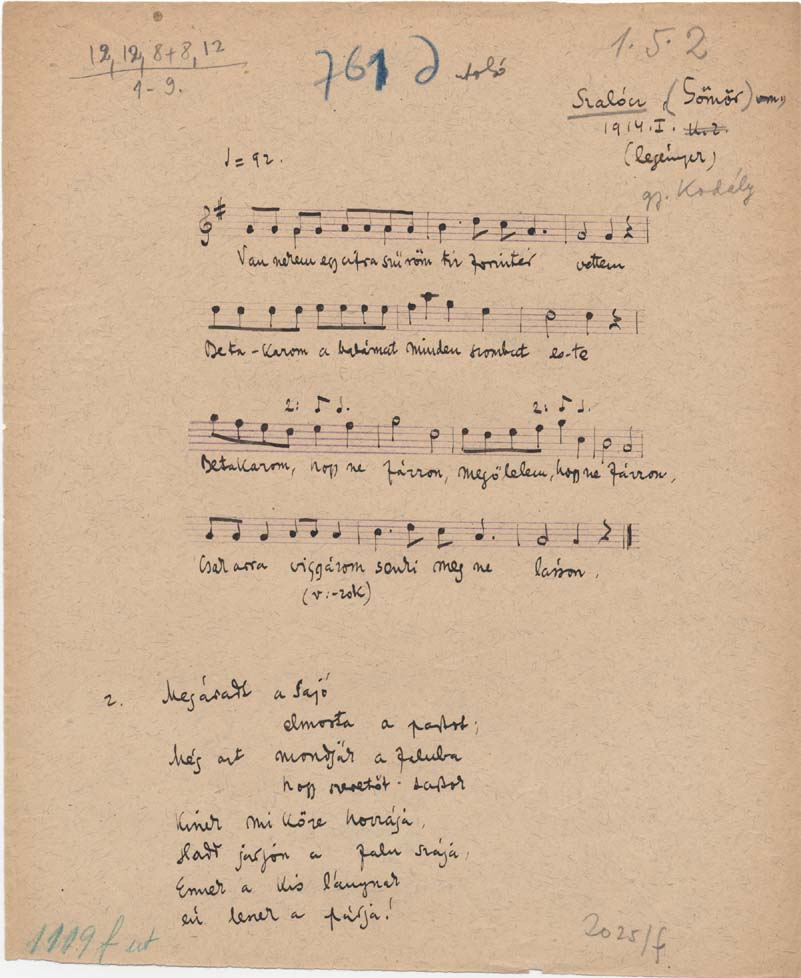 12, 12, 8+8, 12
1-9.
761 d alsó
1.5.2
Szalócz (Gömör) vm.
1914. I.
(legényer)
gy. Kodály
♩= 92.
Van nekem egy cifra szűröm tiz forintér vettem
Beta-karom a babámat minden szombat es-te
2: ♪ ♩. 2: ♪ ♩.
Betakarom, hogy ne fázzon, megölelem, hogy ne fázzon,
Csak arra vigyázom senki meg ne lásson.
(v:-zok)
2. Megáradt a Sajó
elmosta a partot;
Még azt mondják a faluba
hogy szeretőt tartok
Kinek mi köze hozzája,
Hadd járjon a falu szája,
Ennek a kis lánynak
én leszek a párja!
1119 f
2025/f